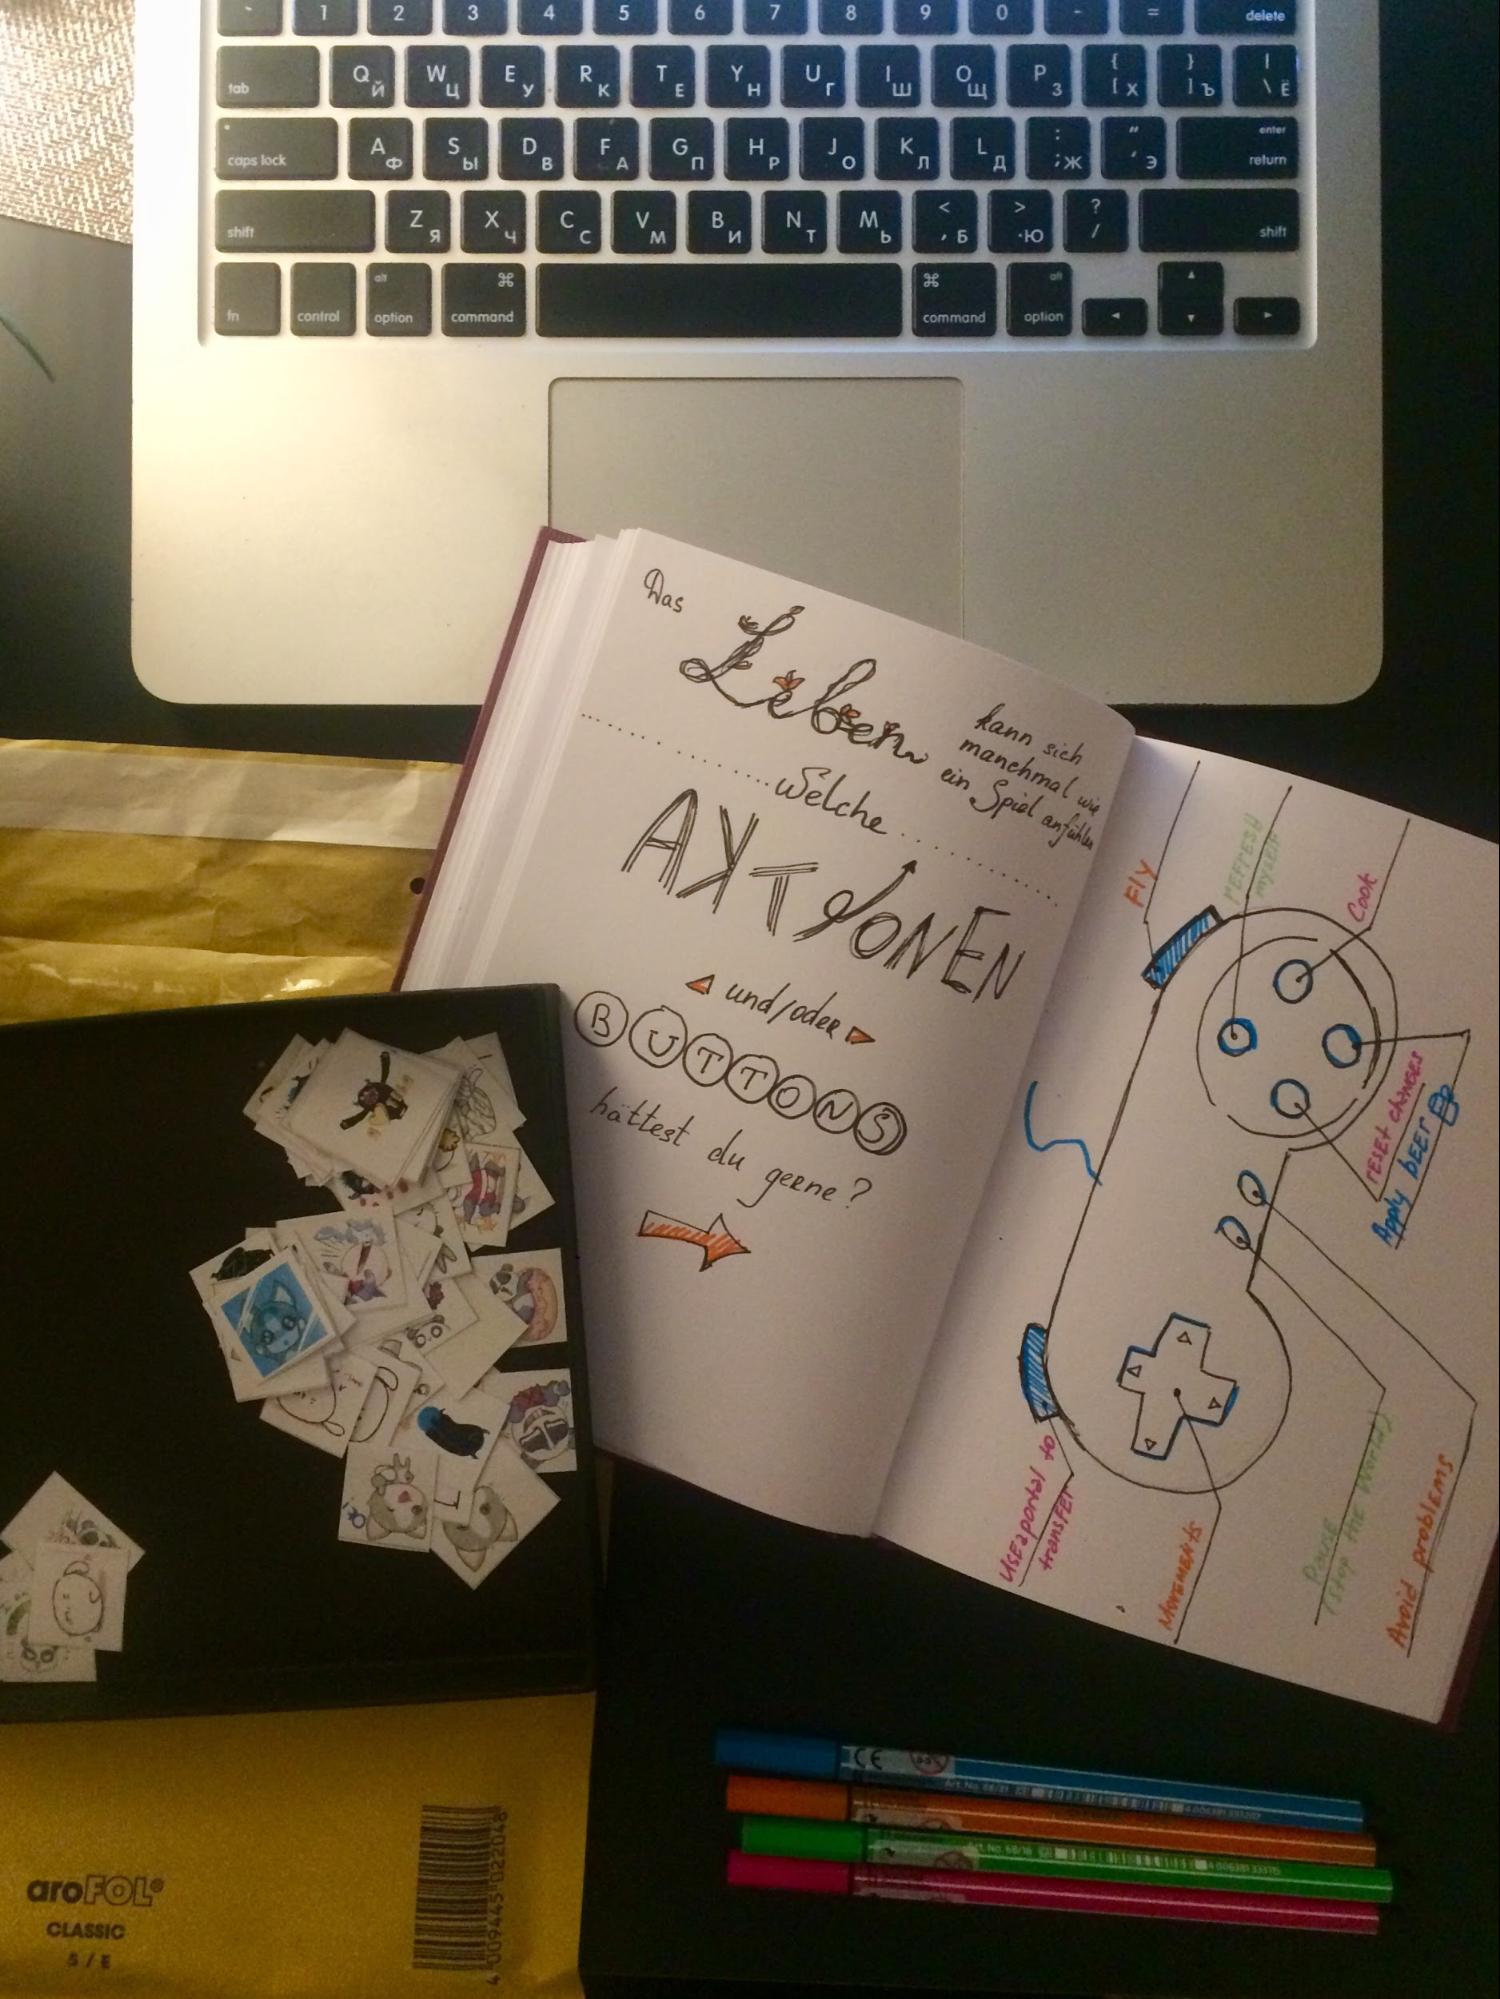 ` 1 2 3 4 5 6 7 8 9 0 - = delete
tab Q Й W Ц E У R К T Е Y Н U Г I Ш O Щ P З { [ Х } ] Ъ | \ Ё
caps lock A Ф S Ы D В F А G П H Р J О K Л L Д : ; Ж " ' Э enter return
shift Z Я X Ч C С V М B И N Т M Ь < , Б > . Ю ? / shift
fn control alt option ⌘ command ⌘ command alt option
Das
Leben
kann sich
manchmal wie
ein Spiel anfühlen
Welche
AKTIONEN
und/oder
BUTTONS
hättest du gerne?
Fly
refresh
myself
Cook
reset changes
Apply beer
Use portal to
transfer
Movements
Pause
(stop the world)
Avoid problems
CE
Art. No. 68/31
Art. No. 68/16
aroFOL®
CLASSIC
5 / E
4 009445 022048